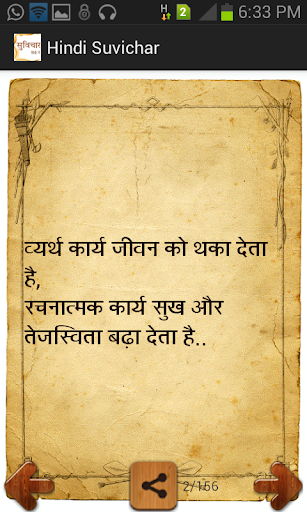 6:33 PM
सुविचार
Hindi Suvichar
व्यर्थ कार्य जीवन को थका देता
है,
रचनात्मक कार्य सुख और
तेजस्विता बढ़ा देता है..
2/156